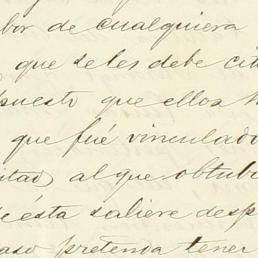 bor de cualquiera
que se les debe cit
puesto que ellos
que fué vinculado
itad) al que obtub
ésta saliere desp
aso pretenda tener